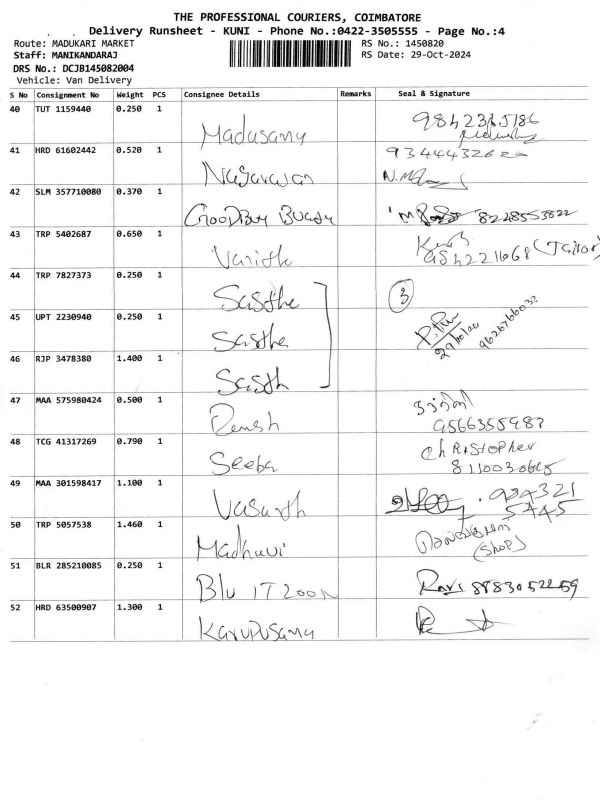 THE PROFESSIONAL COURIERS, COIMBATORE
Delivery Runsheet - KUNI - Phone No.:0422-3505555 - Page No.:4
Route: MADUKARI MARKET RS No.: 1450820
Staff: MANIKANDARAJ RS Date: 29-Oct-2024
DRS No.: DCJB145082004
Vehicle: Van Delivery
S No Consignment No Weight PCS Consignee Details Remarks Seal & Signature
40 TUT 1159440 0.250 1
Madusamy
41 HRD 61602442 0.520 1
Nagarajan
42 SLM 357710080 0.370 1
8228553822
43 TRP 5402687 0.650 1
(Tailor)
44 TRP 7827373 0.250 1
Sasthe 3
45 UPT 2230940 0.250 1
Sasthe 29/10/24 9626766032
46 RJP 3478380 1.400 1
Sasth
47 MAA 575980424 0.500 1
Denesh 9566355987
48 TCG 41317269 0.790 1
Seeba Christopher
49 MAA 301598417 1.100 1
Vasanth 5445
50 TRP 5057538 1.460 1
Madhavi (Shop)
51 BLR 285210085 0.250 1
Blu IT Zoon Ravi 8883052259
52 HRD 63500907 1.300 1
Karupusamy